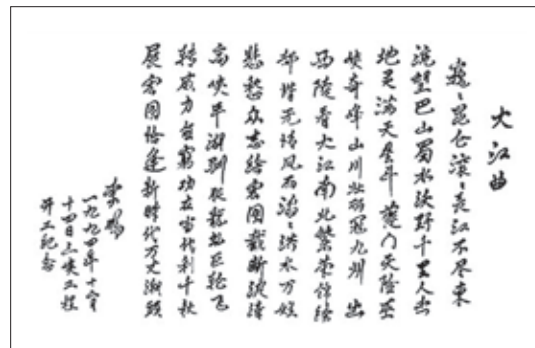 大江曲
巍々昆仑滚々长江不尽东
流望巴山蜀水沃野千里人杰
地灵满天星斗 夔门天险巫
峡奇峰山川壮丽冠九州 出
西陵看大江南北繁荣锦绣
却惜无情风雨滔々洪水万姓
悲愁众志绘宏图截断波涛
高峡平湖 巨轮飞
转威力无穷功在当代利千秋
展宏图恰逢新时代万丈潮头
李鹏
一九九四年十二月
十四日三峡工程
开工纪念